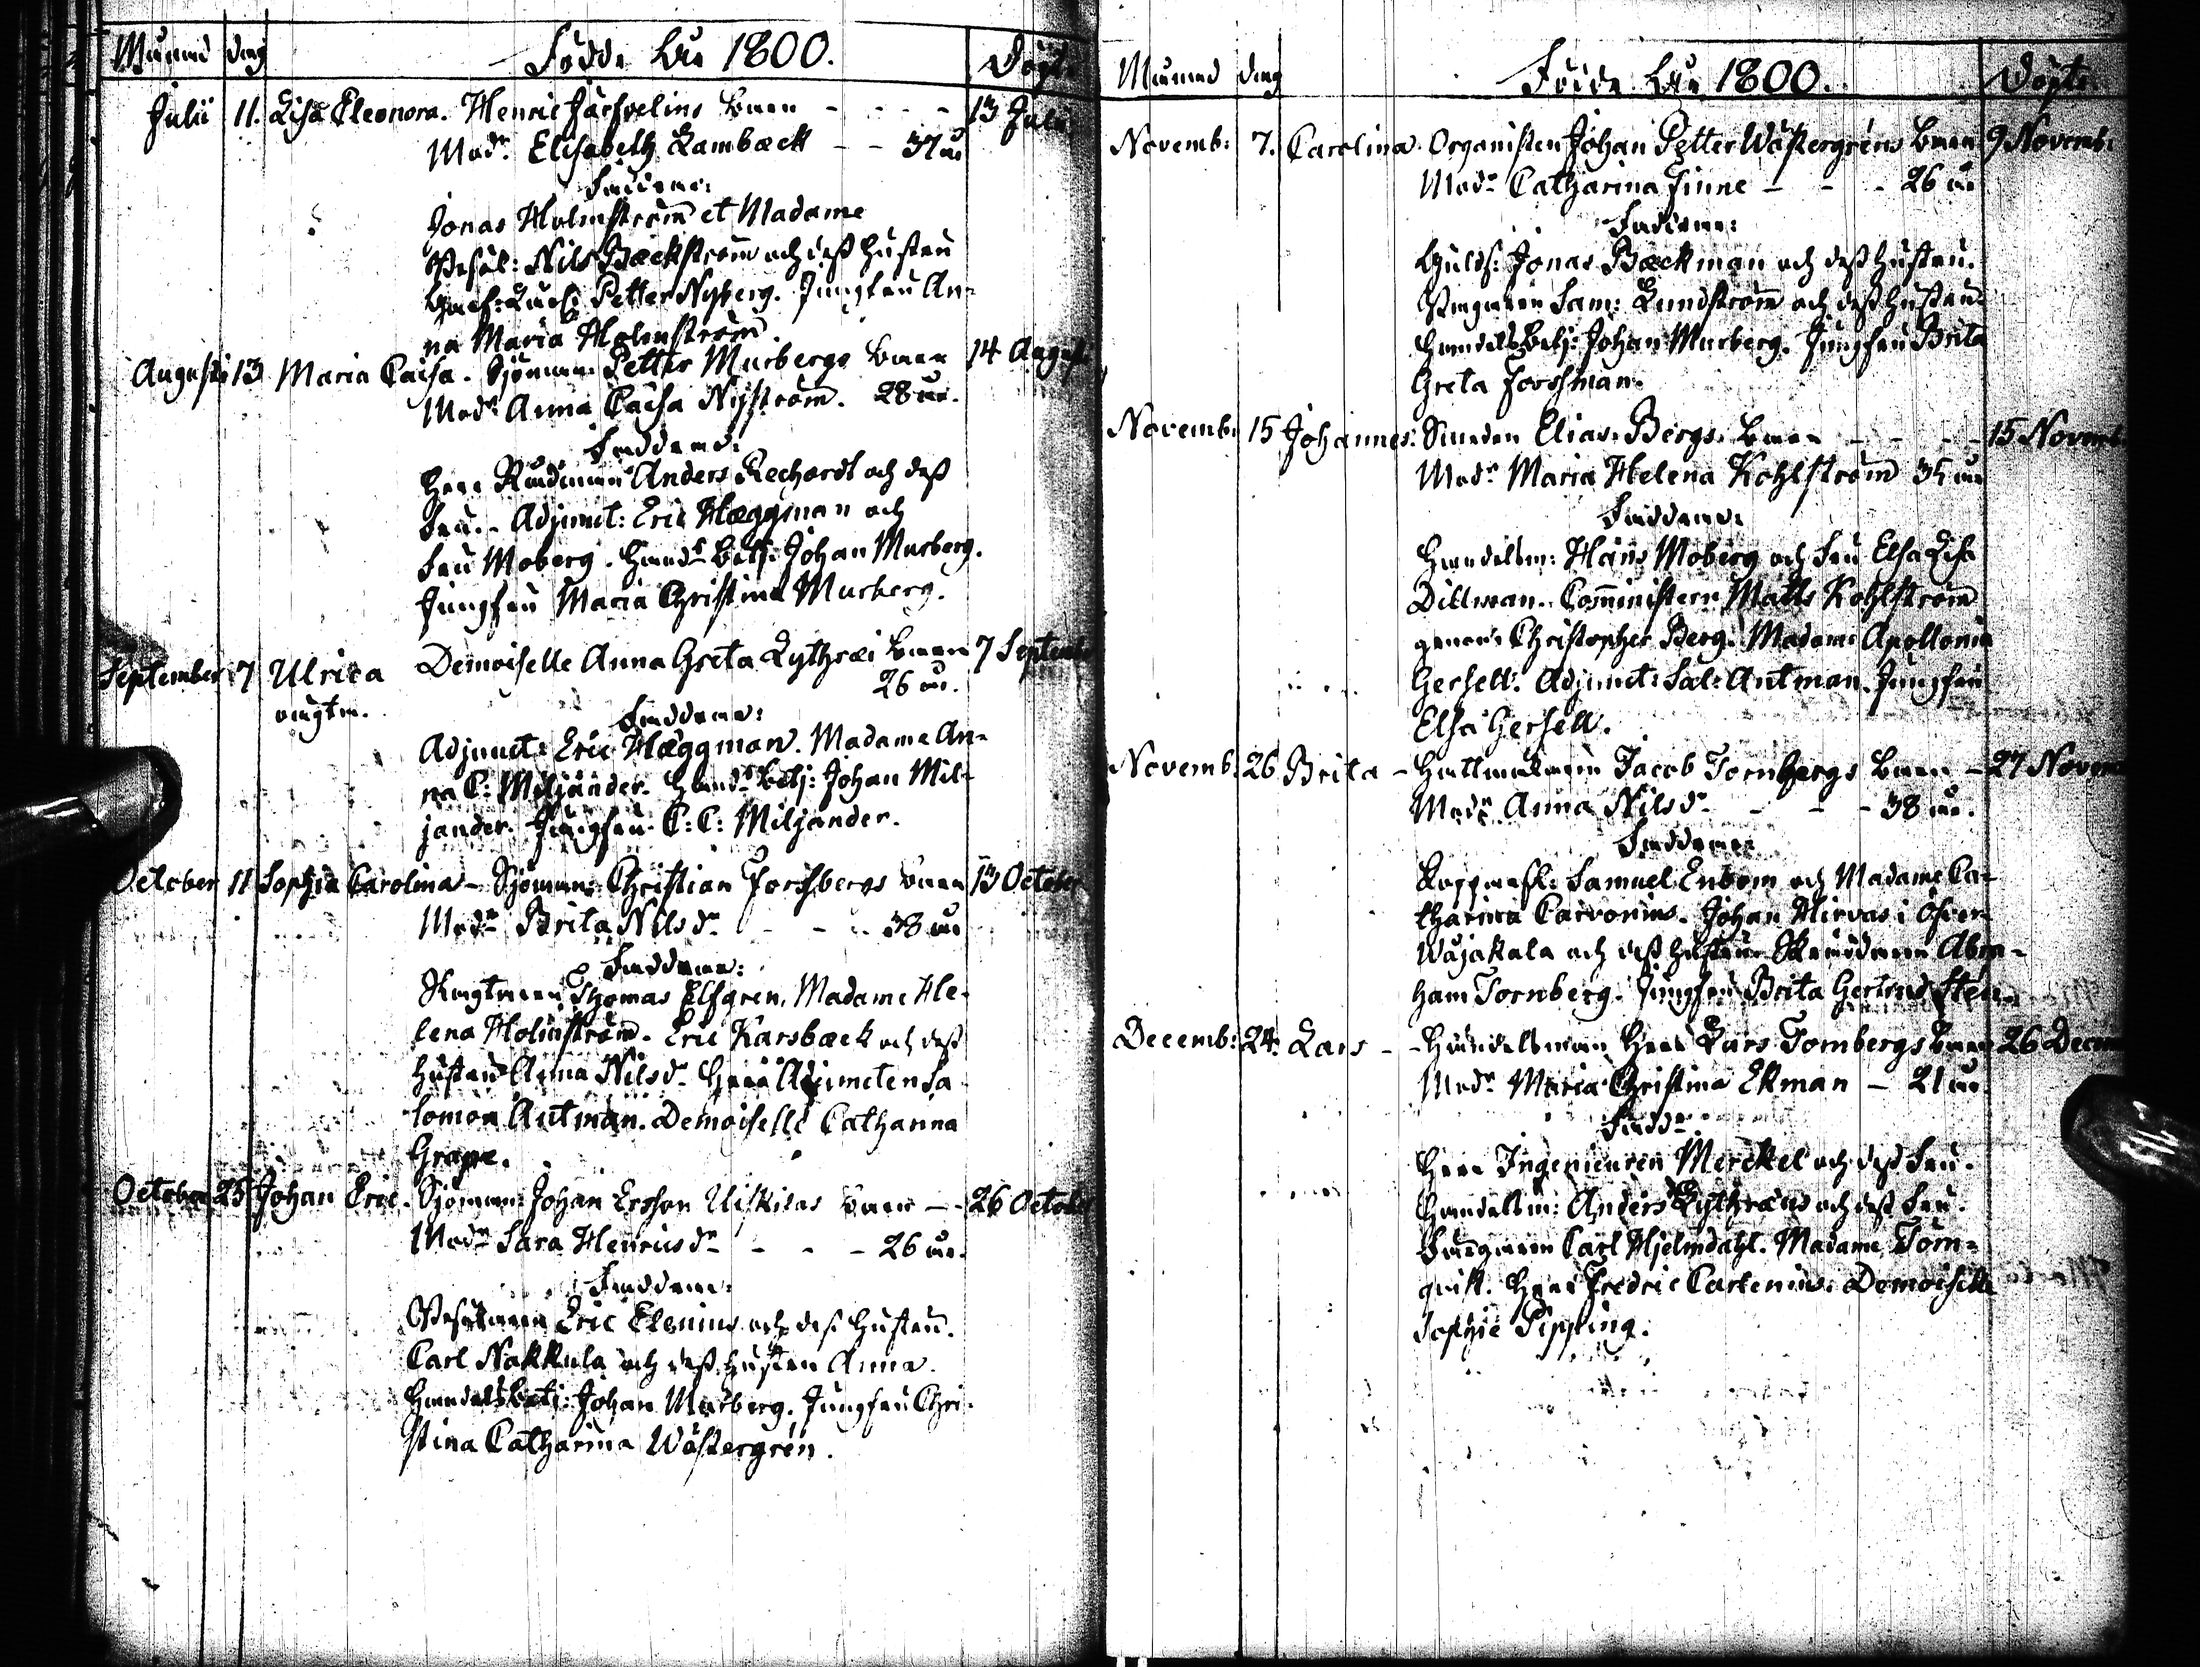 Månad dag Födde åhr 1800. Döpte
Julii 11. Lisa Eleonora. Henric Järfvelins barn - - - - 13 Julii
Modr. Elisabeth Lambæck - - 37 år
Faddrar:
Jonas Holmström et Madame
Gesäl: Nils Bæckström och dess hustru
Petter Nyberg. Jungfru An-
na Maria Holmström.
Augusti 13 Maria Caisa. Sjöman: Petter Murbergs barn 14 August
Modr. Anna Caisa Nyström. 28 år.
Faddrar:
Herr Rådman Anders Rechardt och dess
Fru. - Adjunct: Eric Hæggman och
Fru Moberg. Hand. betj: Johan Murberg.
Jungfru Maria Christina Murberg.
September 7 Ulrica Demoiselle Anna Greta Lythræi barn 7 Septemb
oägta. 26 år.
Faddrar:
Adjunct: Eric Hæggman. Madame An-
na C: Miljander. Hand. betj: Johan Mil-
jander. Jungfru C: C: Miljander.
October 11 Sophia Carolina - Sjöman: Christian Forssbergs barn 13 October
Modr. Brita Nilsdr. - - - 38 år
Faddrar:
Thomas Elfgren, Madame He-
lena Holmström. Eric Karsbæck och dess
hustru Anna Nilsdr. Herr Adjuncten Sa-
lomon Antman. Demoiselle Catharina
Grape.
October 25 Johan Eric. Sjöman: Johan Ersson Uiskilas barn - - 26 October
Modr. Sara Henricsdr. - - - 26 år.
Faddrar:
Eric Elenius och dess hustru.
Carl Nakkula och dess hustru Anna.
Handelsbetj: Johan Murberg. Jungfru Chri-
stina Catharina Wästergrén.
Månad dag Födde åhr 1800. Döpte
Novemb: 7. Carolina. Organisten Johan Petter Wästergréns barn 9 Novemb:
Modr. Catharina Finne - - - 26 år
Faddrar:
Guldsm: Jonas Bæckman och dess hustru.
Sam: Lundström och dess hustru.
Handelsbetj: Johan Murberg. Jungfru Brita
Greta Forssman.
Novemb: 15 Johannes: Smeden Elias Bergs barn - - - - 15 Novemb
Modr. Maria Helena Kohlström 35 år
Faddrar:
Handelsm: Hans Moberg och Fru Elsa Lisa
Dillman. Comministern Matts Kohlström
Christopher Berg. Madame Apollonia
Gersell. Adjunct: Sal: Antman. Jungfru
Elsa Gersell.
Novemb: 26 Brita - Hattmakaren Jacob Tornbergs barn - 27 Novem
Modr. Anna Nilsdr. - - - 38 år.
Faddrar
Kopparsl: Samuel Enbom och Madame Ca-
tharina Carvonius. Johan Hirvas i Öfver-
Wojakala och dess hustru. Skräddaren Abra-
ham Tornberg. Jungfru Brita Gertrud Sten.
Decemb: 24. Lars - - Handelsman Herr Lars Tornbergs barn 26 Decem
Modr. Maria Christina Ekman - 21 år
Faddr.
Herr Ingenieuren Merckel och dess Fru.
Handelsm: Anders Lythræus och dess Fru.
Carl Hjelmdahl. Madame Torn-
quist. Herr Fredric Carlenius. Demoiselle
Sophie Pipping.